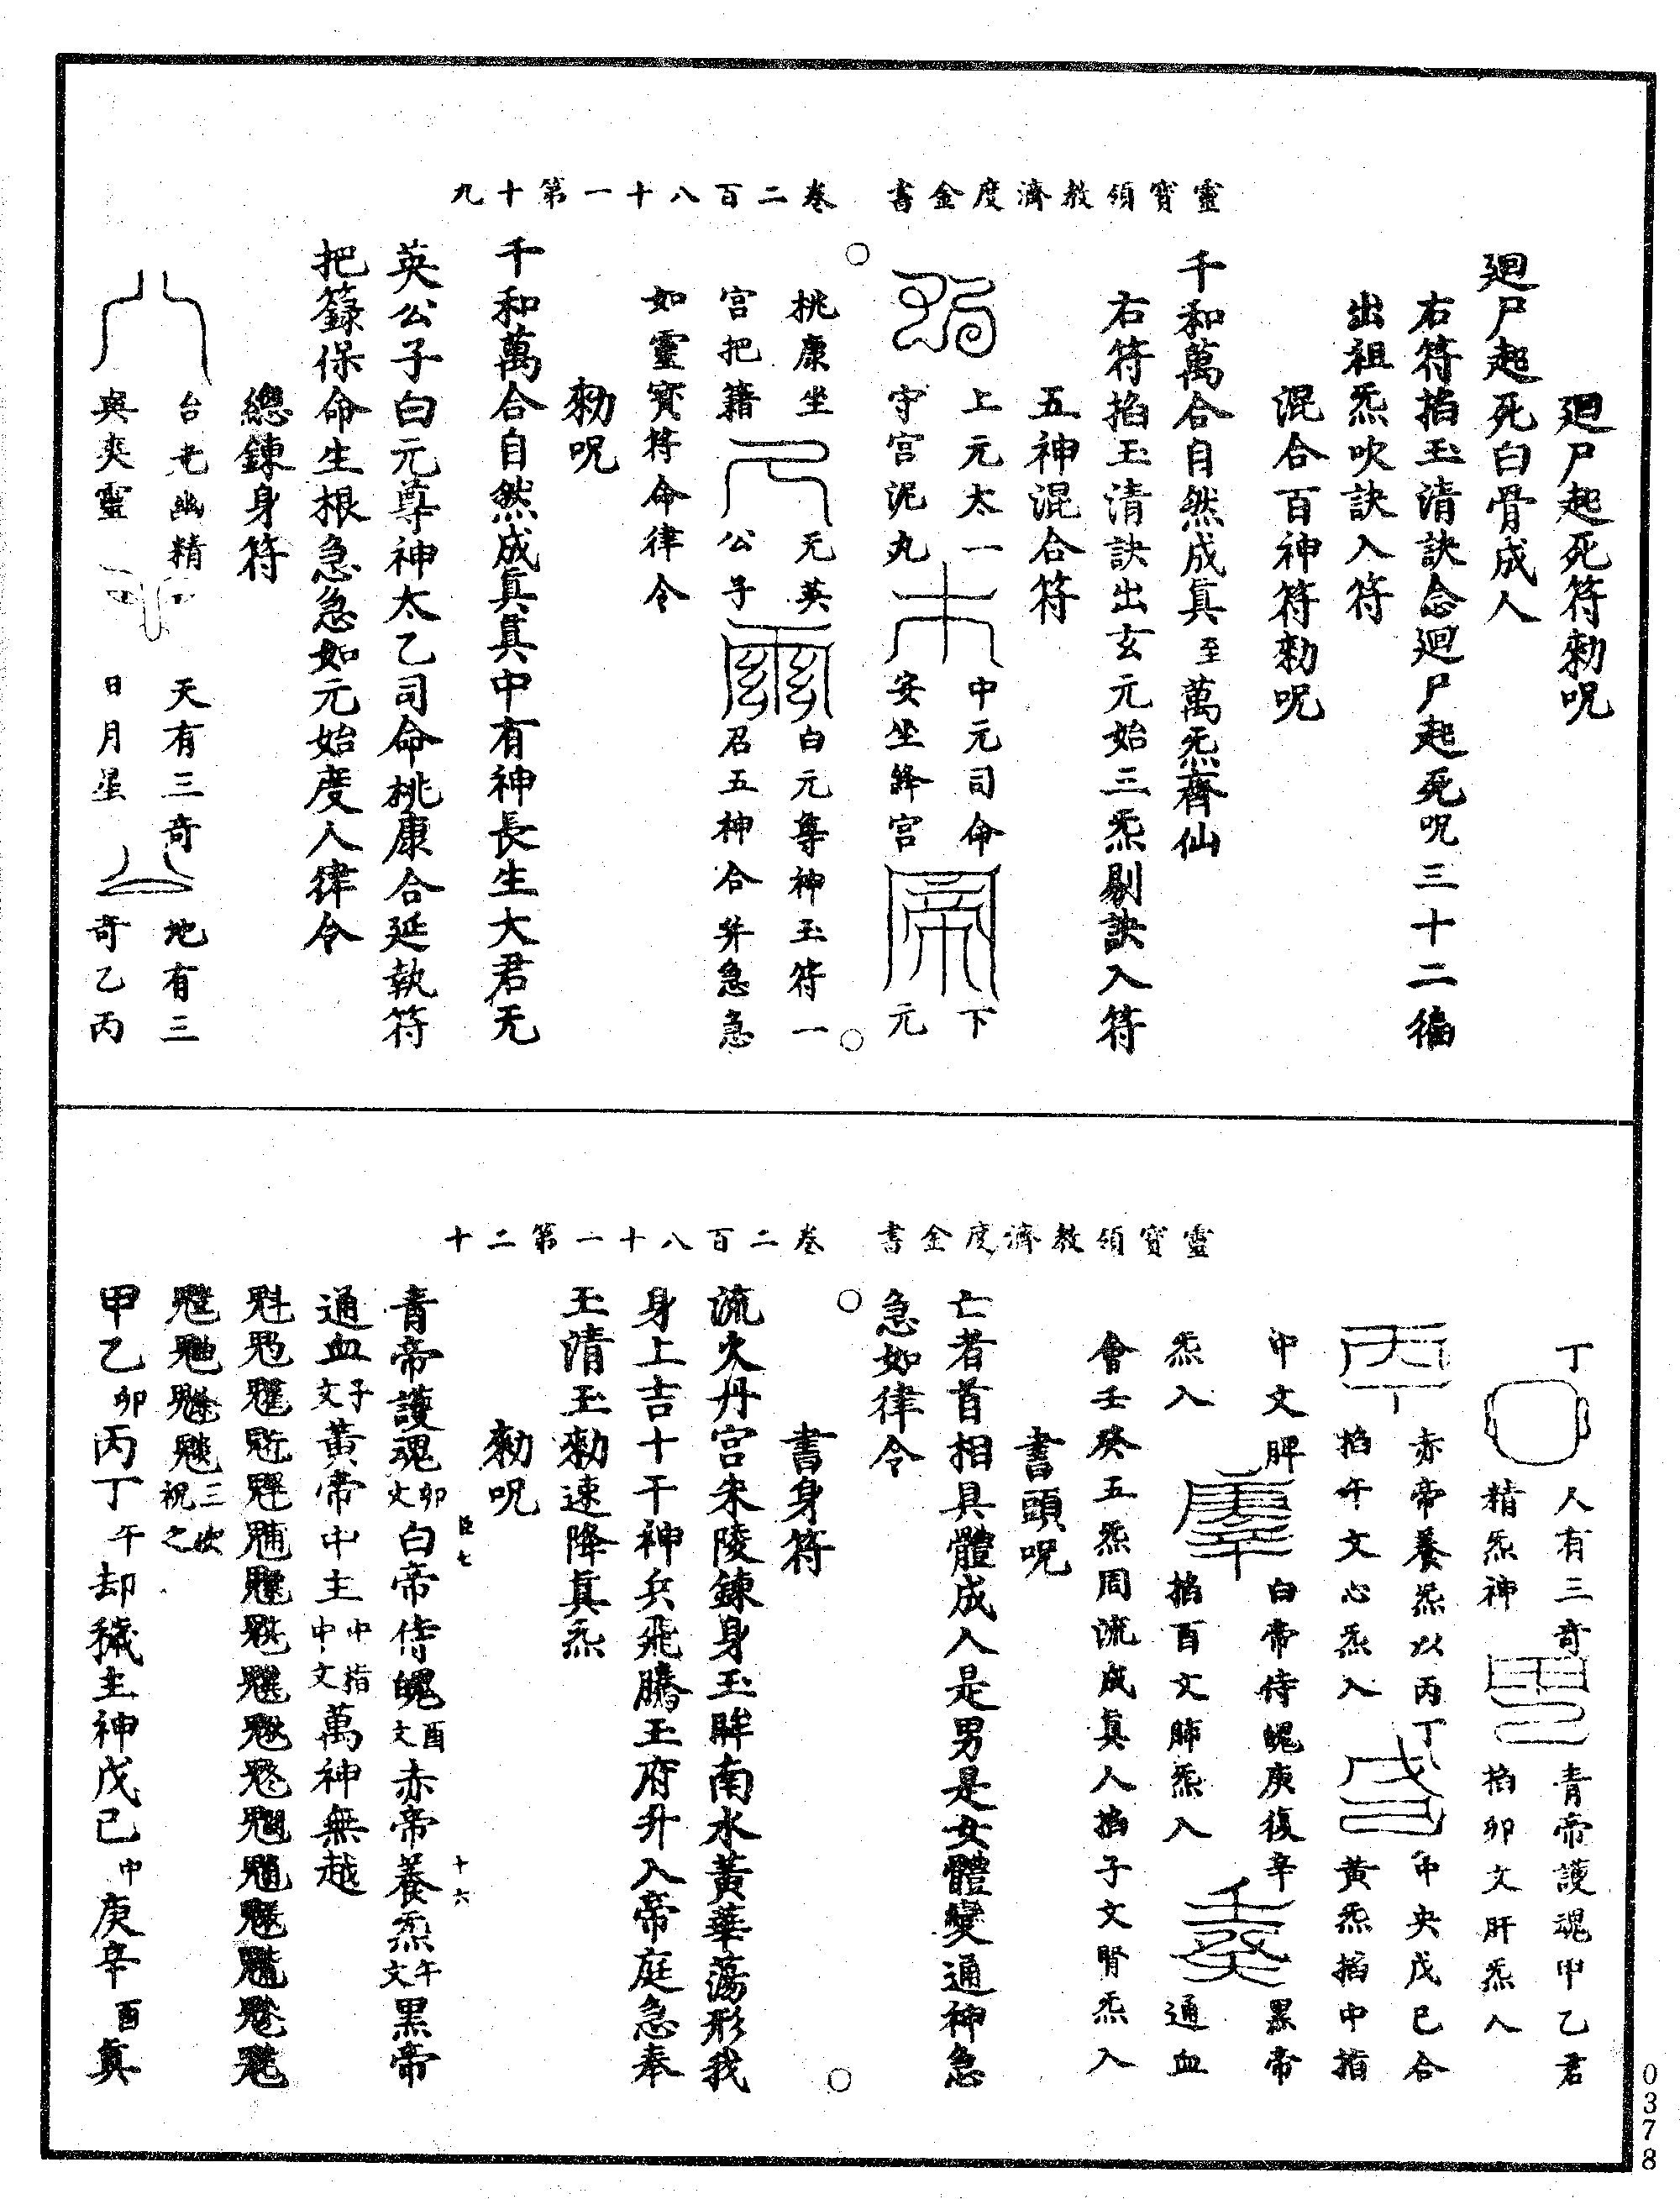 靈寶領教濟度金書 卷二百八十一第十九
廻尸起死符勑呪
廻尸起死白骨成人
右符掐玉清訣念廻尸起死呪三十二徧
出祖炁吹訣入符
混合百神符勑呪
千和萬合自然成眞至萬炁齊仙
右符掐玉清訣出玄元始三炁剔訣入符
五神混合符
上元太一守宮泥丸
中元司命安坐絳宮
下元桃康坐宮把籍
无英公子
白元尊神玉符一召五神合并急急
如靈寶符命律令
勑呪
千和萬合自然成眞眞中有神長生大君无
英公子白元尊神太乙司命桃康合延執符
把籙保命生根急急如元始度人律令
總鍊身符
台光幽精與爽靈
天有三奇日月星
地有三奇乙丙
靈寶領教濟度金書 卷二百八十一第二十
丁
人有三奇精炁神
青帝護魂甲乙君掐卯文肝炁入
赤帝養炁以丙丁掐午文心炁入
中央戊己合黃炁掐中指中文脾炁入
白帝侍魄庚復辛掐酉文肺炁入
黑帝通血會壬癸五炁周流成眞人掐子文腎炁入
書頭呪
亡者首相具體成人是男是女體變通神急
急如律令
書身符
流火丹宮朱陵鍊身玉眸南水黃華蕩形我
身上吉十干神兵飛騰玉府升入帝庭急奉
玉清玉勑速降眞炁
勑呪
青帝護魂卯文白帝侍魄酉文赤帝養炁午文黑帝
通血子文黃帝中主中指中文萬神無越
三吹祝之
甲乙卯丙丁午却穢主神戊己中庚辛酉眞
臣七
十六
0378